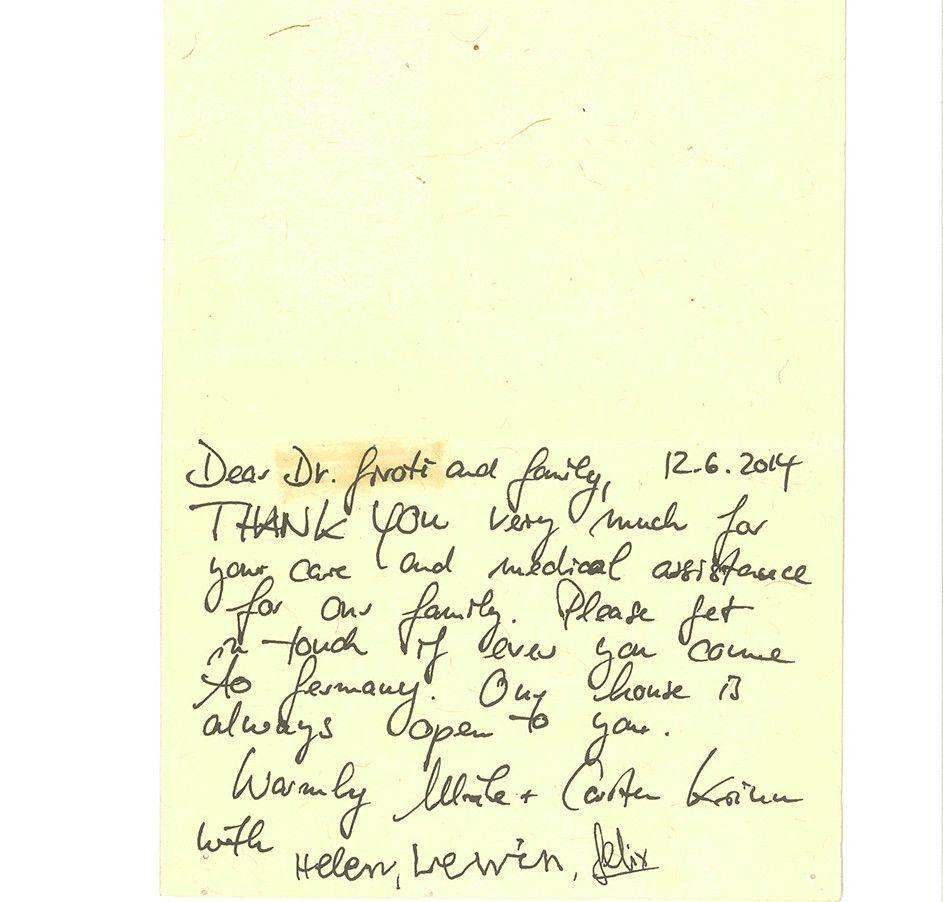 Dear Dr. Jivoti and family, 12.6.2014
THANK YOU very much for
your care and medical assistance
for our family. Please get
in touch if ever you come
to Germany. Our house is
always open to you.
Warmly + Carsten
with
Helen, Lewin, Felix